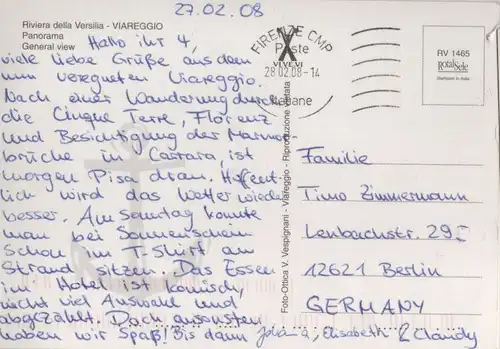 27.02.08
Riviera della Versilia - VIAREGGIO
Panorama
General view
Hallo ihr 4,
viele liebe Grüße aus dem
nun verregneten Viareggio.
Nach einer Wanderung durch
die Cinque Terre, Florenz
und Besichtigung der Marmor-
brüche in Carrara, ist
morgen Pisa dran. Hoffent-
lich wird das Wetter wieder
besser. Am Samstag konnte
man bei Sonnenschein
schon im T-Shirt am
Strand sitzen. Das Essen
im Hotel ist komisch,
nicht viel Auswahl und
abgezählt. Doch ansonsten
haben wir Spaß! Bis dann
Elisabeth & Claudy
Foto-Ottica V. Vespignani - Viareggio - Riproduzione vietata
FIRENZE CMP
Poste
VI VE VI
28.02.08-14
Italiane
RV 1465
rotalsele
Stampato in Italia
Familie
Timo Zimmermann
Lenbachstr.
12621 Berlin
GERMANY